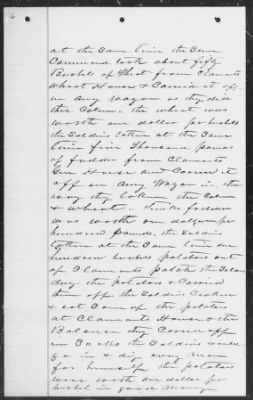 at the Same time the Same
Command took about fifty
Bushels of Wheat from Claimants
Wheat House & Carried it off
on Army Wagon as they did
the Cotton. the wheat was
worth one dollar per bushel
the Soldiers taken at the Same
time five Thousand pounds
of fodder from Claimants
Gin House and Carried it
off on Army Wagon in the
way they taken the
& wheat. this fodder
was worth one dollar per
hundred pounds, the Soldiers
taken at the Same time one
hundred bushels potatoes out
of Claimants patch the Soldiers
dug the potatoes & Carried
them off the Soldiers Cooked
& eat Some of the potatoes
at Claimants House & the
Balance they Carried off
in Sacks the Soldiers would
go in & dig every man
for himself the potatoes
were worth one dollar per
bushel in good money